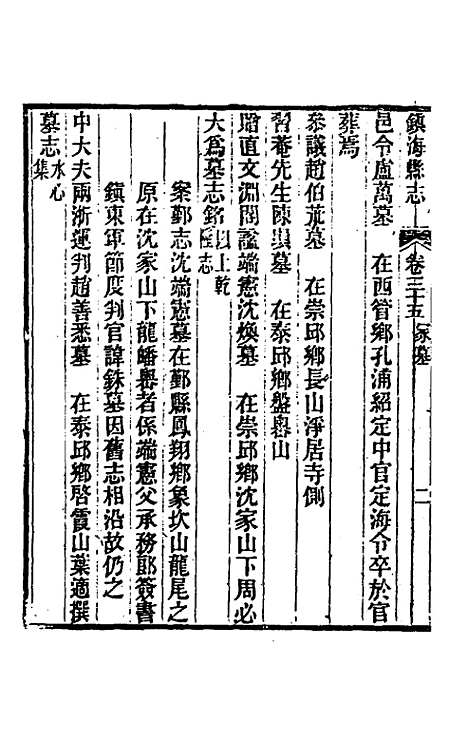 鎮海縣志 卷三十五 冢墓 二
邑令盧萬墓 在西管鄉孔浦紹定中官定海令卒於官
葬焉
泰議趙伯㠩墓 在崇邱鄉長山淨居寺側
習菴先生陳塤墓 在泰邱鄉盤嶴山
贈直文淵閣諡端憲沈煥墓 在崇邱鄉沈家山下周必
大爲墓志銘以上乾隆志
案鄞志沈端憲墓在鄞縣鳳翔鄉象坎山龍尾之
原在沈家山下龍蟠嶴者係端憲父承務郎簽書
鎮東軍節度判官諱銖墓因舊志相沿故仍之
中大夫兩浙運判趙善悉墓 在泰邱鄉啓霞山葉適撰
墓志水心集